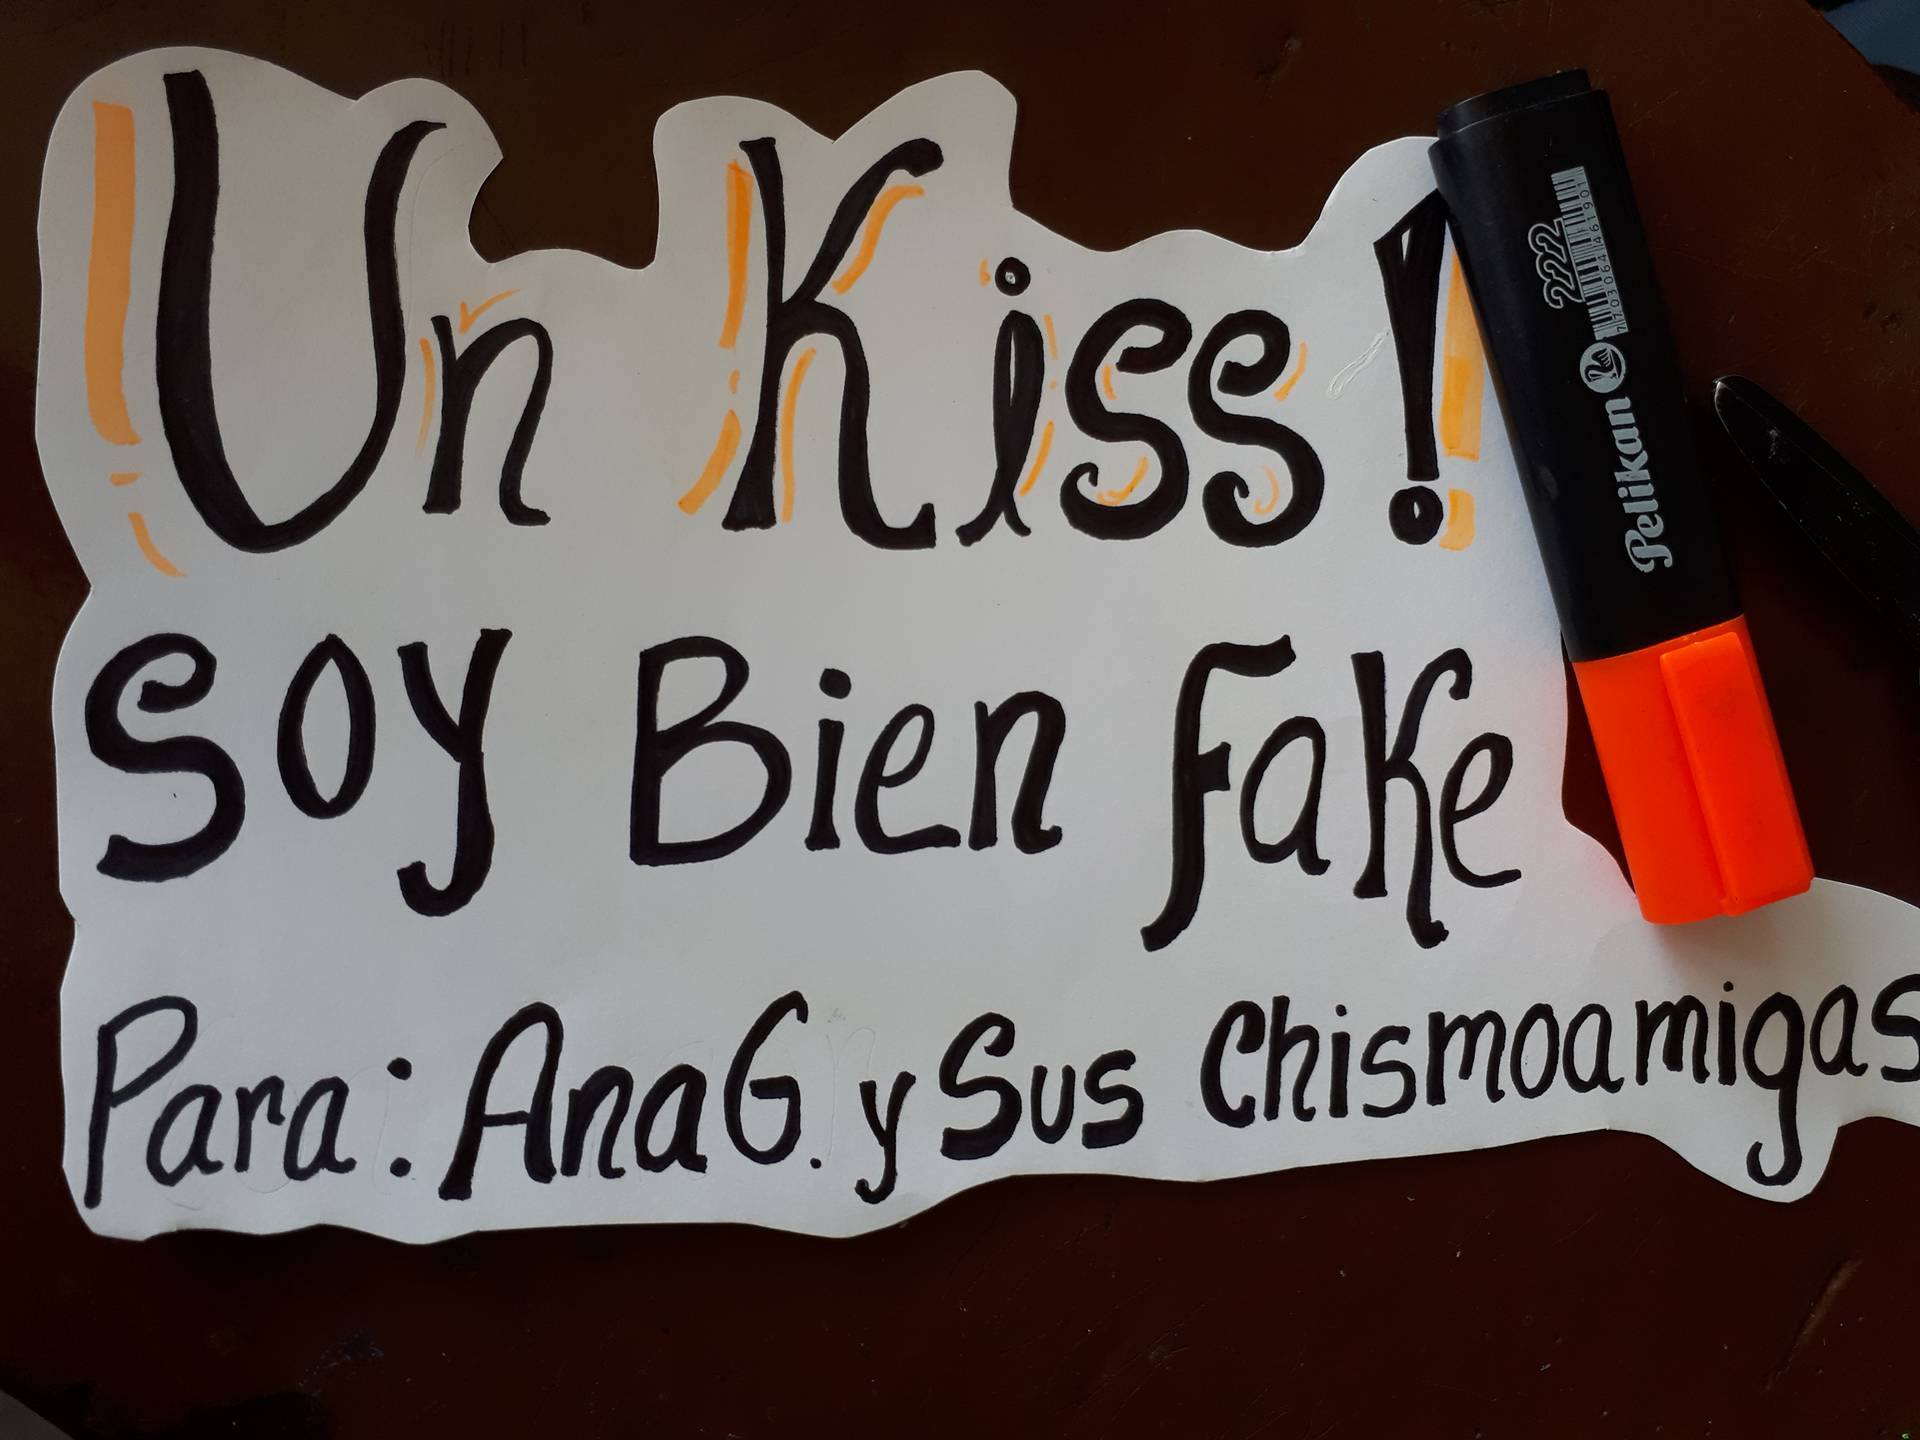 Un Kiss!
Soy Bien Fake
Para: Ana G. y Sus Chismoamigas
Pelikan
222
7703064461901